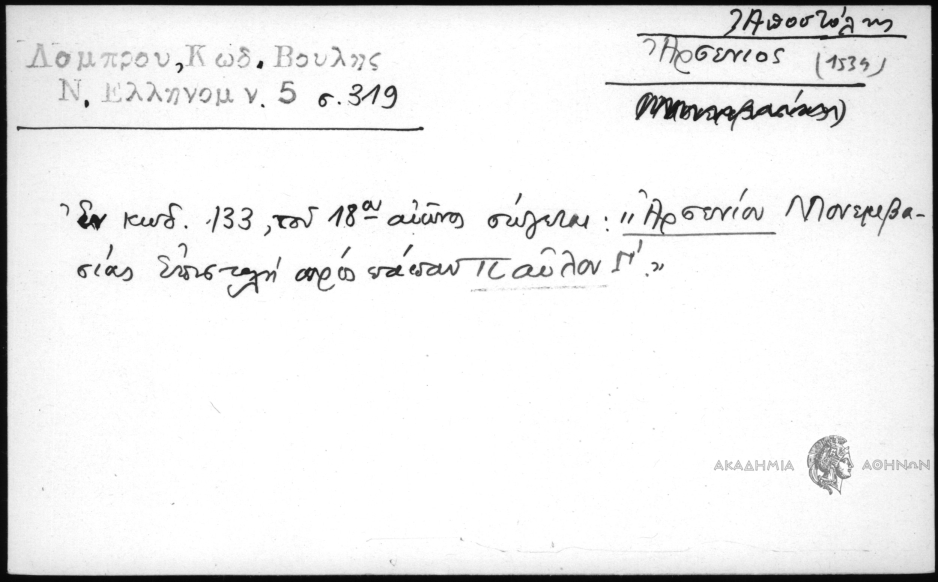 Λσμπρου, Κωδ. Βουλης
Ν. Ελληνομν. 5 σ. 319
Ἀποστόλης
Ἀρσένιος (1534)
Ἐν κωδ. 133, τοῦ 18ου αἰῶνος σώζεται: „Ἀρσενίου Μονεμβα-
σίας Ἐπιστολή πρός πάπαν Παῦλον Γ΄.”
ΑΚΑΔΗΜΙΑ ΑΘΗΝΩΝ